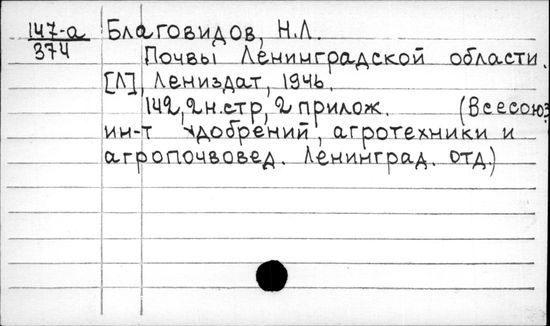 147-а
374
Благовидов, Н.Л.
Почвы Ленинградской области.
[Л], Лениздат, 1946.
142, 2 н.стр, 2 прилож. (Всесоюз
ин-т удобрений, агротехники и
агропочвовед. Ленинград. отд.)